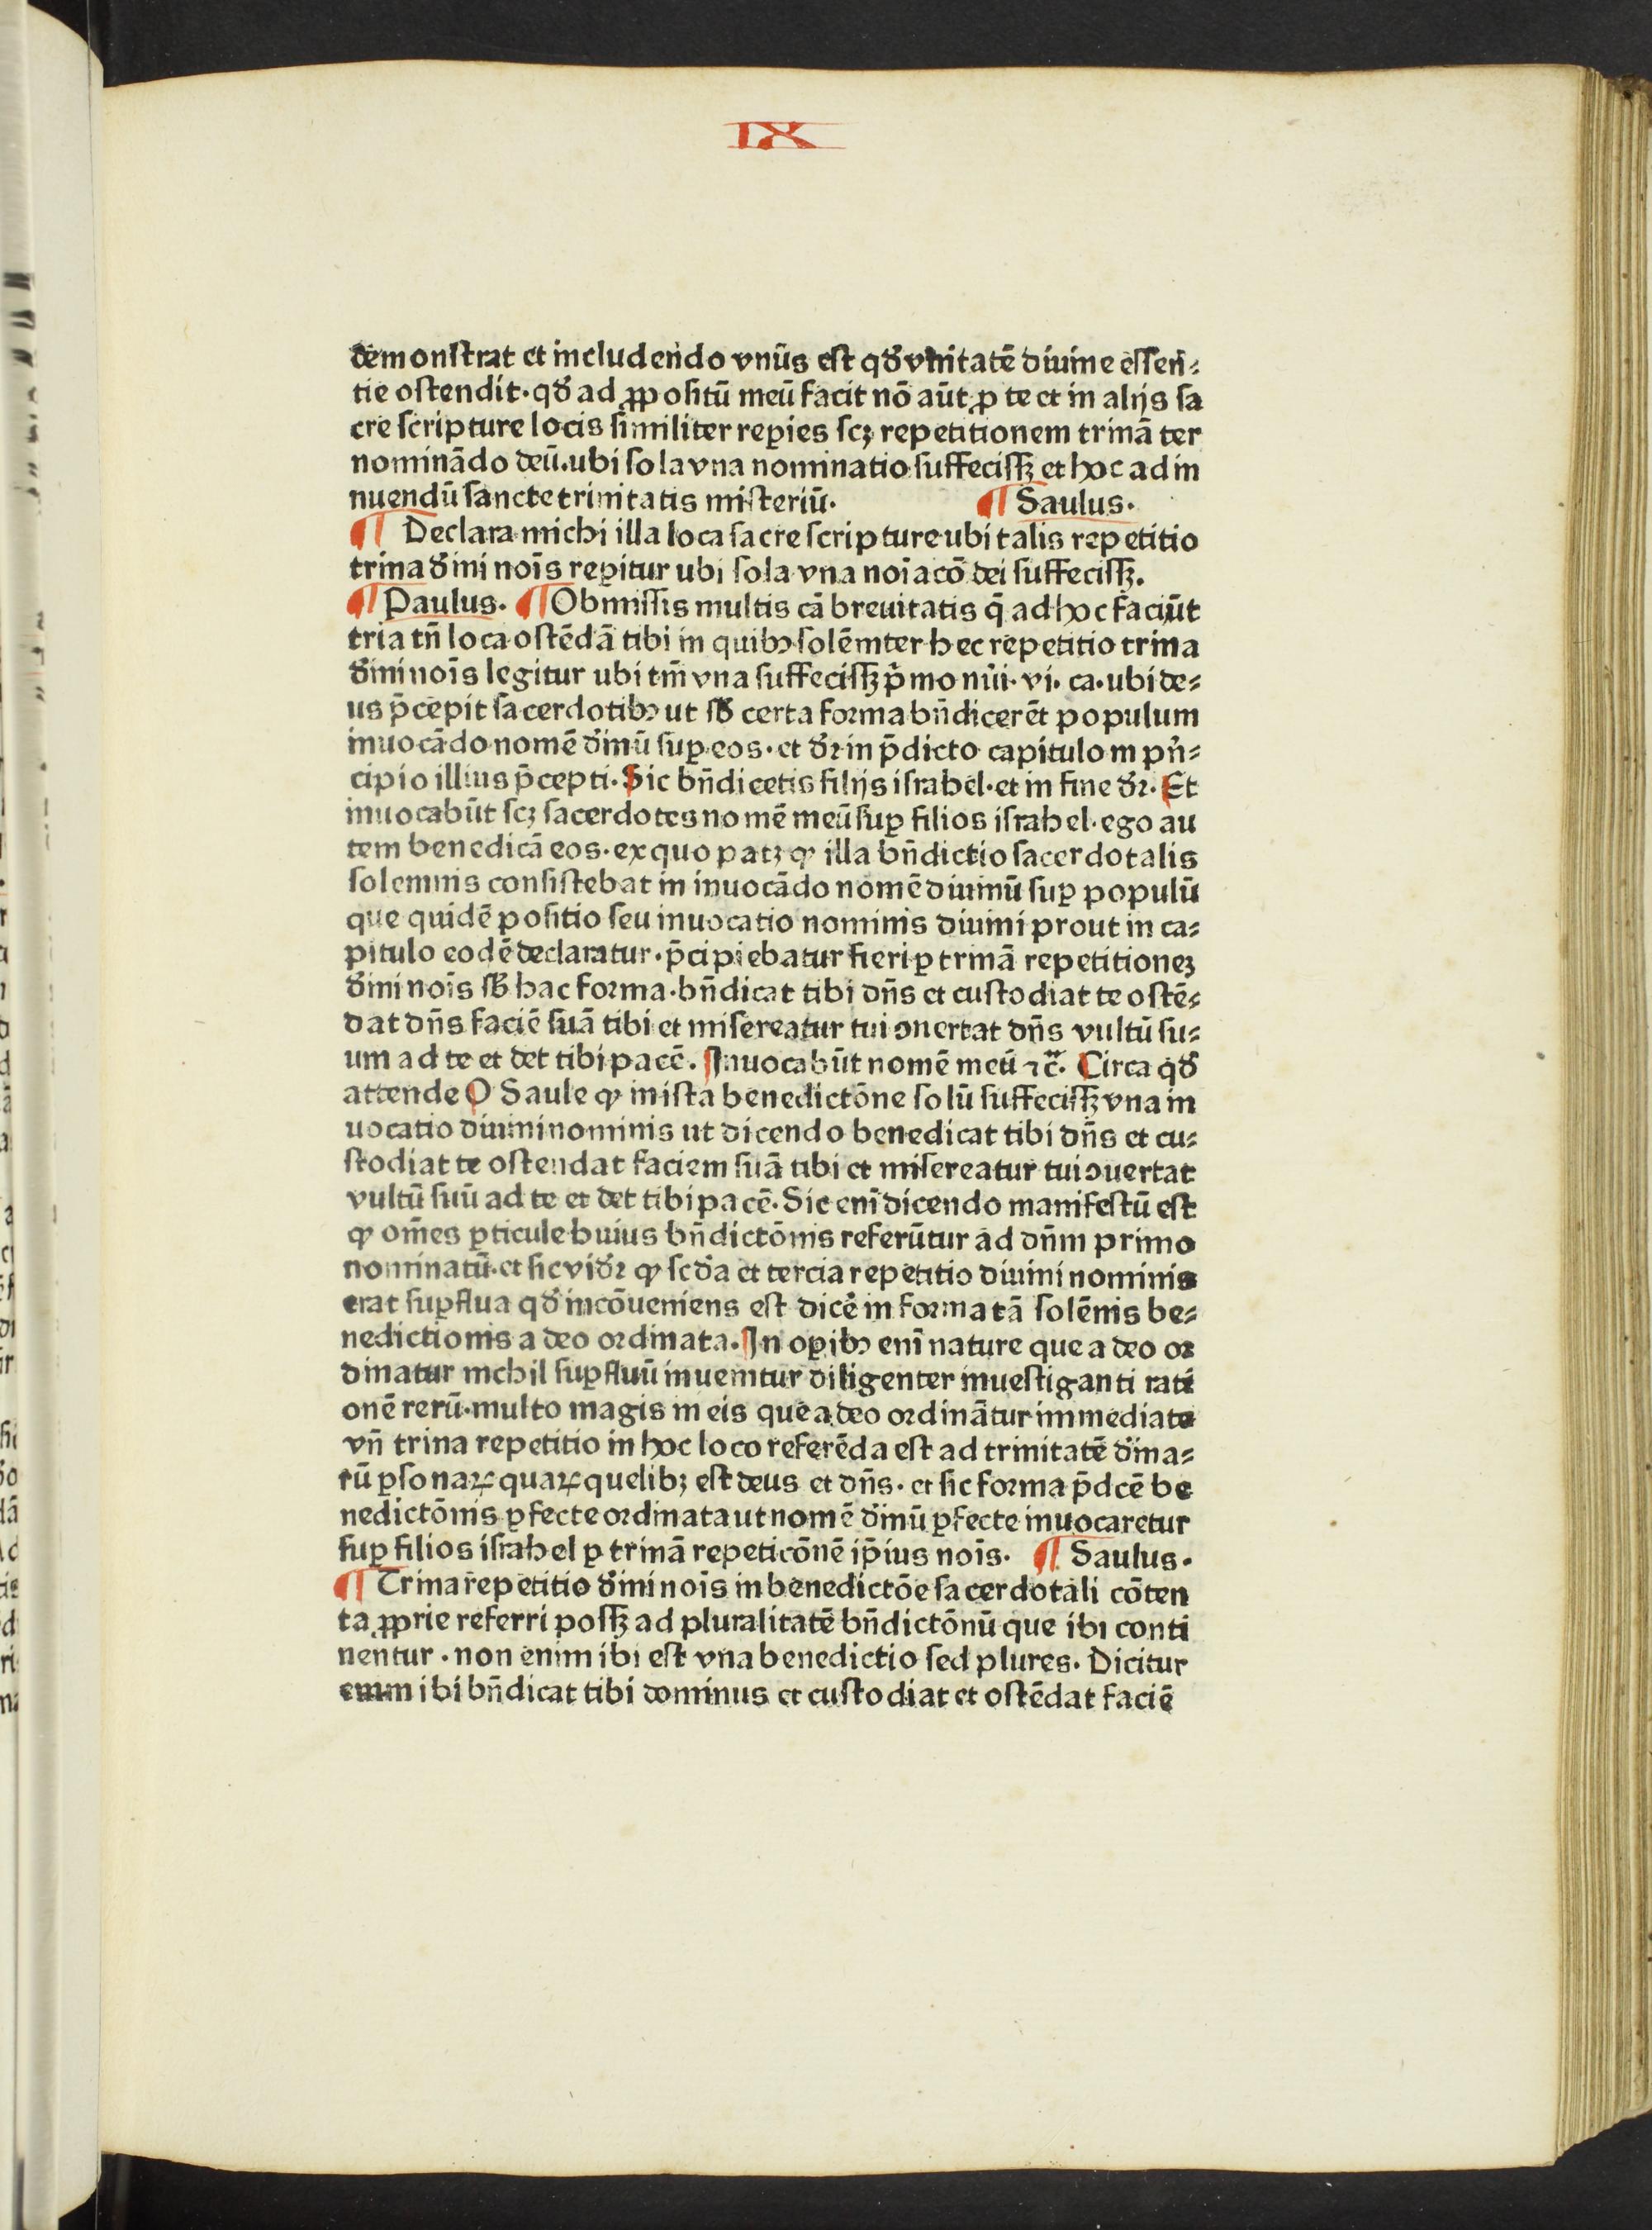 IX
demonſtrat et includendo vnūs eſt qð vnitatē diuine eſſen⸗
tie oſtendit. qð ad ꝓpoſitū meū facit nō aūt ꝓ te et in alijs ſa
cre ſcripture locis ſimiliter reꝑies ſcꝫ repetitionem trinā ter
nominādo deū. ubi ſola vna nominatio ſuffeciſſꝫ et hoc ad in
nuendū ſancte trinitatis miſteriū. ¶ Saulus.
¶ Declara michi illa loca ſacre ſcripture ubi talis repetitio
trina ðini nois̄ reꝑitur ubi ſola vna noiacō dei ſuffeciſſꝫ.
¶ Paulus. ¶ Obmiſſis multis cā breuitatis q̄ ad hoc faciūt
tria tn̄ loca oſtēdā tibi in quibꝰ ſolēniter hec repetitio trina
ðini nois̄ legitur ubi tm̄ vna ſuffeciſſꝫ p̄mo nūi. vi. ca. ubi de⸗
us p̄cepit ſacerdotibꝰ ut ſb̄ certa forma bn̄dicerēt populum
inuocādo nomē ðinū ſuꝑ eos. et ðꝛ in p̄dicto capitulo in pn̄⸗
cipio illius p̄cepti. Sic bn̄dicetis filijs iſrahel. et in fine ðꝛ. Et
inuocabūt ſcꝫ ſacerdotes nomē meū ſuꝑ filios iſrahel. ego au
tem benedicā eos. ex quo patꝫ ꝙ illa bn̄dictio ſacerdotalis
ſolemnis conſiſtebat in inuocādo nomē diuinū ſuꝑ populū
que quidē poſitio ſeu inuocatio nominis diuini prout in ca⸗
pitulo eodē declaratur. p̄cipiebatur fieri ꝑ trinā repetitioneꝫ
ðini nois̄ ſb̄ hac forma. bn̄dicat tibi dn̄s et cuſtodiat te oſtē⸗
dat dn̄s faciē ſuā tibi et miſereatur tui ↄuertat dn̄s vultū ſu⸗
um ad te et det tibi pacē. Inuocabūt nomē meū ⁊c̄. Circa qð
attende O Saule ꝙ in iſta benedictōne ſolū ſuffeciſſꝫ vna in
uocatio diuini nominis ut dicendo benedicat tibi dn̄s et cu⸗
ſtodiat te oſtendat faciem ſuā tibi et miſereatur tui ↄuertat
vultū ſuū ad te et det tibi pacē. Sic enī dicendo manifeſtū eſt
ꝙ om̄es ꝑticule huius bn̄dictōnis referūtur ad dn̄m primo
nominatū. et ſic viðꝛ ꝙ ſcða et tercia repetitio diuini nominis
erat ſuꝑflua qð incōueniens eſt dicē in forma tā ſolēnis be⸗
nedictionis a deo ordinata. In oꝑibꝰ enī nature que a deo or
dinatur nichil ſuꝑfluū inuenitur diligenter inueſtiganti rati
onē rerū. multo magis in eis que a deo ordinātur immediate
vn̄ trina repetitio in hoc loco referēda eſt ad trinitatē ðina⸗
rū ꝑſonaꝝ quaꝝ quelibꝫ eſt deus et dn̄s. et ſic forma p̄dcē be
nedictōnis ꝑfecte ordinata ut nomē ðinū ꝑfecte inuocaretur
ſuꝑ filios iſrahel ꝑ trinā repeticōnē ip̄ius nois̄. ¶ Saulus.
¶ Trina repetitio ðini nois̄ in benedictōe ſacerdotali cōten
ta ꝓprie referri poſſꝫ ad pluralitatē bn̄dictōnū que ibi conti
nentur. non enim ibi eſt vna benedictio ſed plures. Dicitur
enim ibi bn̄dicat tibi dominus et cuſtodiat et oſtēdat faciē